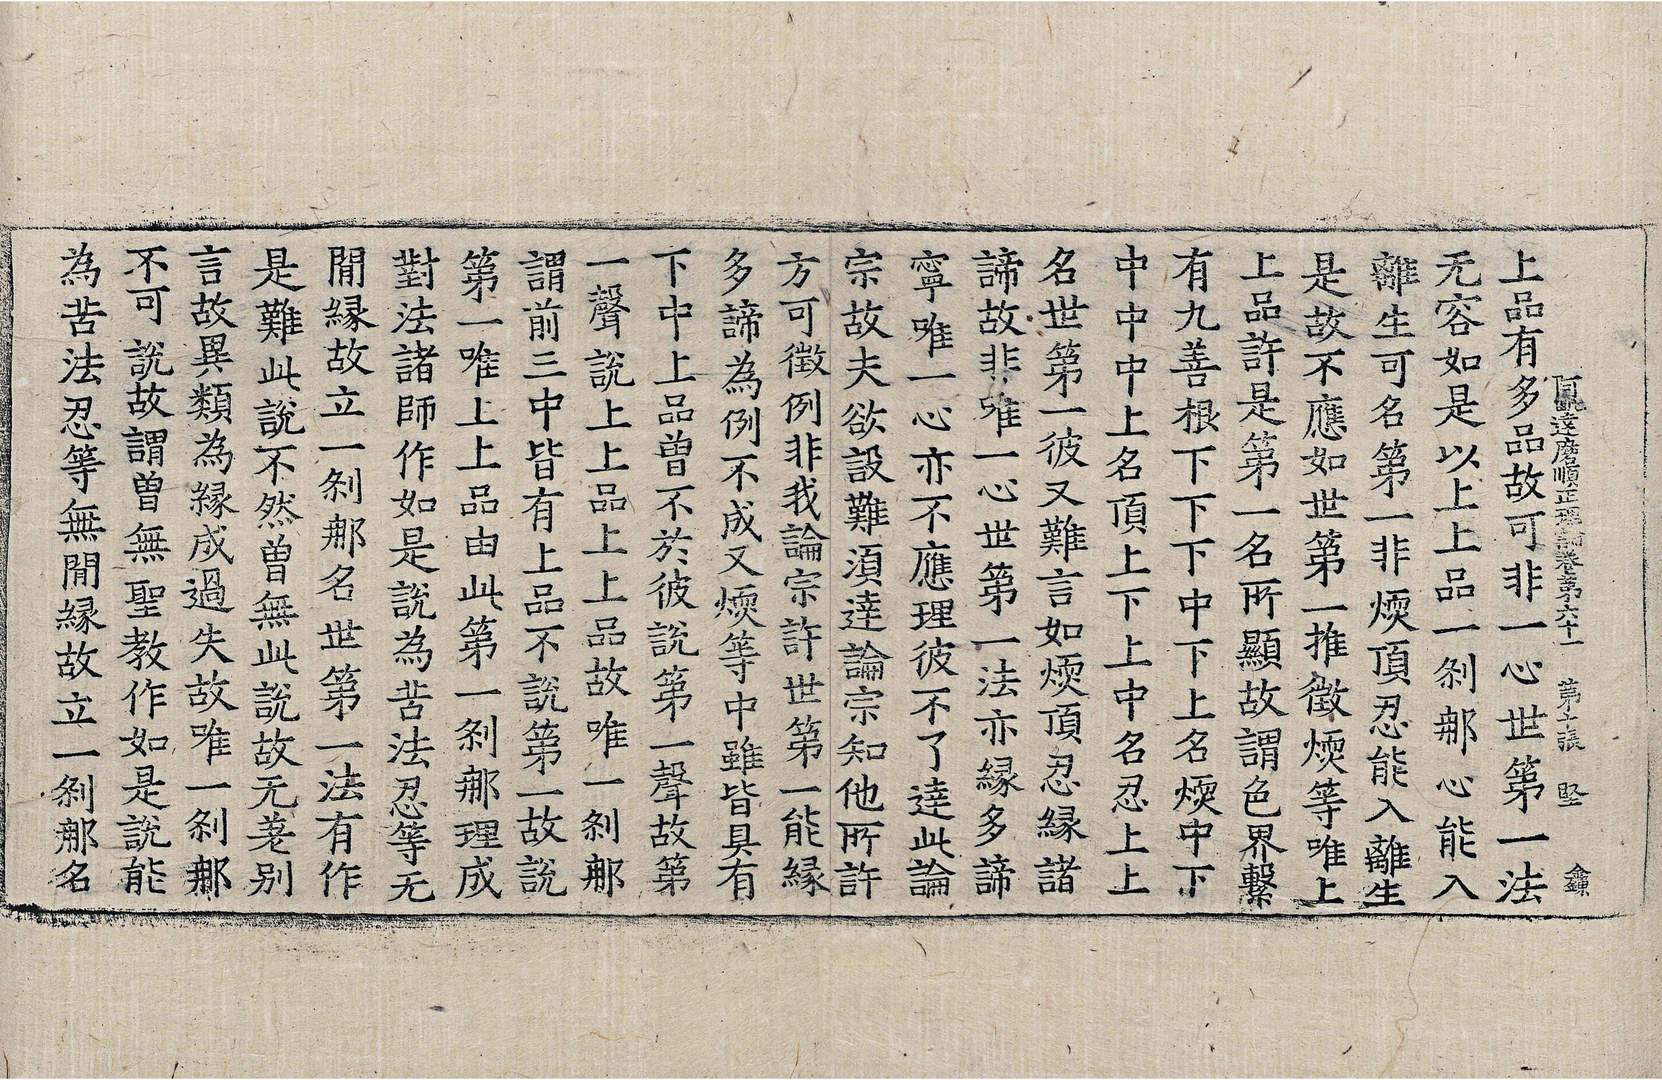 阿毗達磨順正理論卷第六十一 第六張 堅
上品有多品故可非一心世第一法
无容如是以上上品一剎那心能入
離生可名第一非煗頂忍能入離生
是故不應如世第一推徵煗等唯上
上品許是第一名所顯故謂色界繫
有九善根下下下中下上名煗中下
中中中上名頂上下上中名忍上上
名世第一彼又難言如煗頂忍緣諸
諦故非唯一心世第一法亦緣多諦
寧唯一心亦不應理彼不了達此論
宗故夫欲設難須達論宗知他所許
方可徵例非我論宗許世第一能緣
多諦為例不成又煗等中雖皆具有
下中上品曾不於彼說第一聲故第
一聲說上上品上上品故唯一剎那
謂前三中皆有上品不說第一故說
第一唯上上品由此第一剎那理成
對法諸師作如是說為苦法忍等无
閒緣故立一剎那名世第一法有作
是難此說不然曾無此說故无差别
言故異類為緣成過失故唯一剎那
不可說故謂曾無聖教作如是說能
為苦法忍等無閒緣故立一剎那名